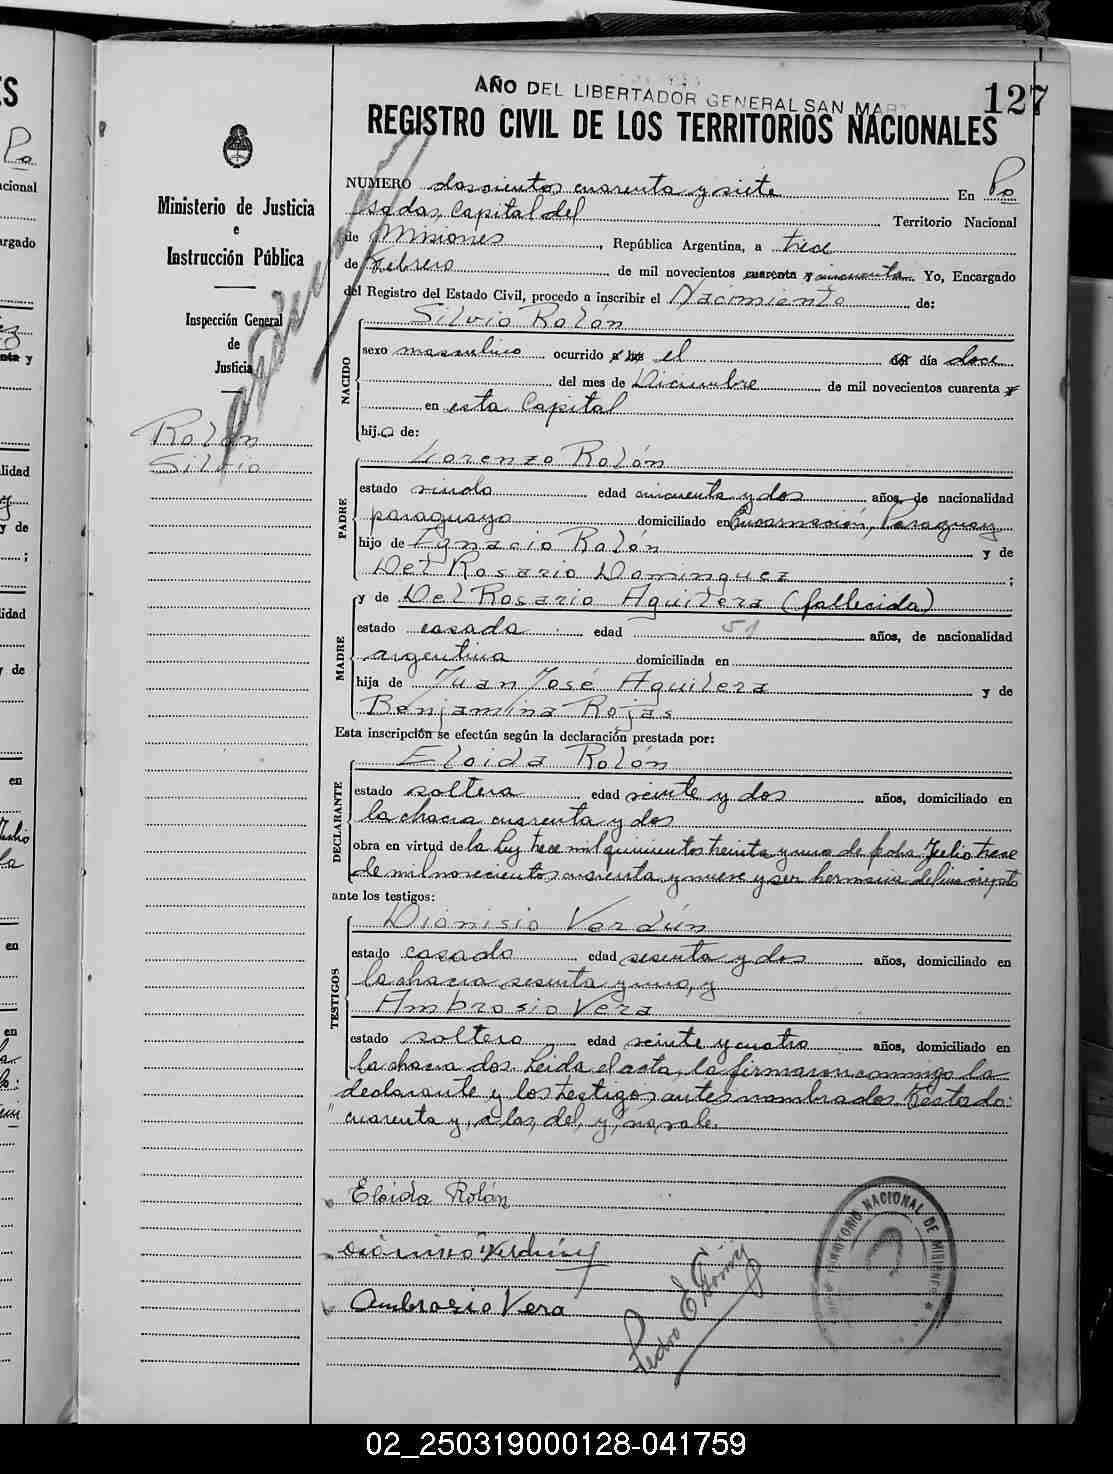 AÑO DEL LIBERTADOR GENERAL SAN MAR
127
REGISTRO CIVIL DE LOS TERRITORIOS NACIONALES
Ministerio de Justicia
e
Instrucción Pública
Inspección General
de
Justicia
Rolón
Silvio
NUMERO doscientos cuarenta y siete En Po
sadas, Capital del Territorio Nacional
de Misiones, República Argentina, a trece
de Febrero de mil novecientos cuarenta y cincuenta. Yo, Encargado
del Registro del Estado Civil, procedo a inscribir el Nacimiento de:
Silvio Rolón
NACIDO
sexo masculino ocurrido a las el del día doce
del mes de Diciembre de mil novecientos cuarenta y
en esta Capital
hijo de:
Lorenzo Rolón
PADRE
estado viudo edad cincuenta y dos años, de nacionalidad
paraguayo domiciliado en Encarnación, Paraguay
hijo de Ignacio Rolón y de
Del Rosario Dominguez;
y de Del Rosario Aguilera (fallecida)
MADRE
estado casada edad 51 años, de nacionalidad
argentina domiciliada en
hija de Juan José Aguilera y de
Benjamina Rojas
Esta inscripción se efectúa según la declaración prestada por:
Eloida Rolón
DECLARANTE
estado soltera edad veinte y dos años, domiciliado en
la chacra cuarenta y dos
obra en virtud de la Ley trece mil quinientos treinta y uno de fecha Julio trece
de mil novecientos cuarenta y nueve y ser hermana del inscripto
ante los testigos:
Dionisio Verdún
TESTIGOS
estado casado edad sesenta y dos años, domiciliado en
la chacra sesenta y uno, y
Ambrosio Vera
estado soltero edad veinte y cuatro años, domiciliado en
la chacra dos. Leida el acta, la firmaron conmigo la
declarante y los testigos antes nombrados. Testado:
"cuarenta y, a las, del, y, no vale.
Eloida Rolón
Dionisio Verdún
Ambrosio Vera
Pedro E Gómez
TERRITORIO NACIONAL DE MISIONES
02_250319000128-041759